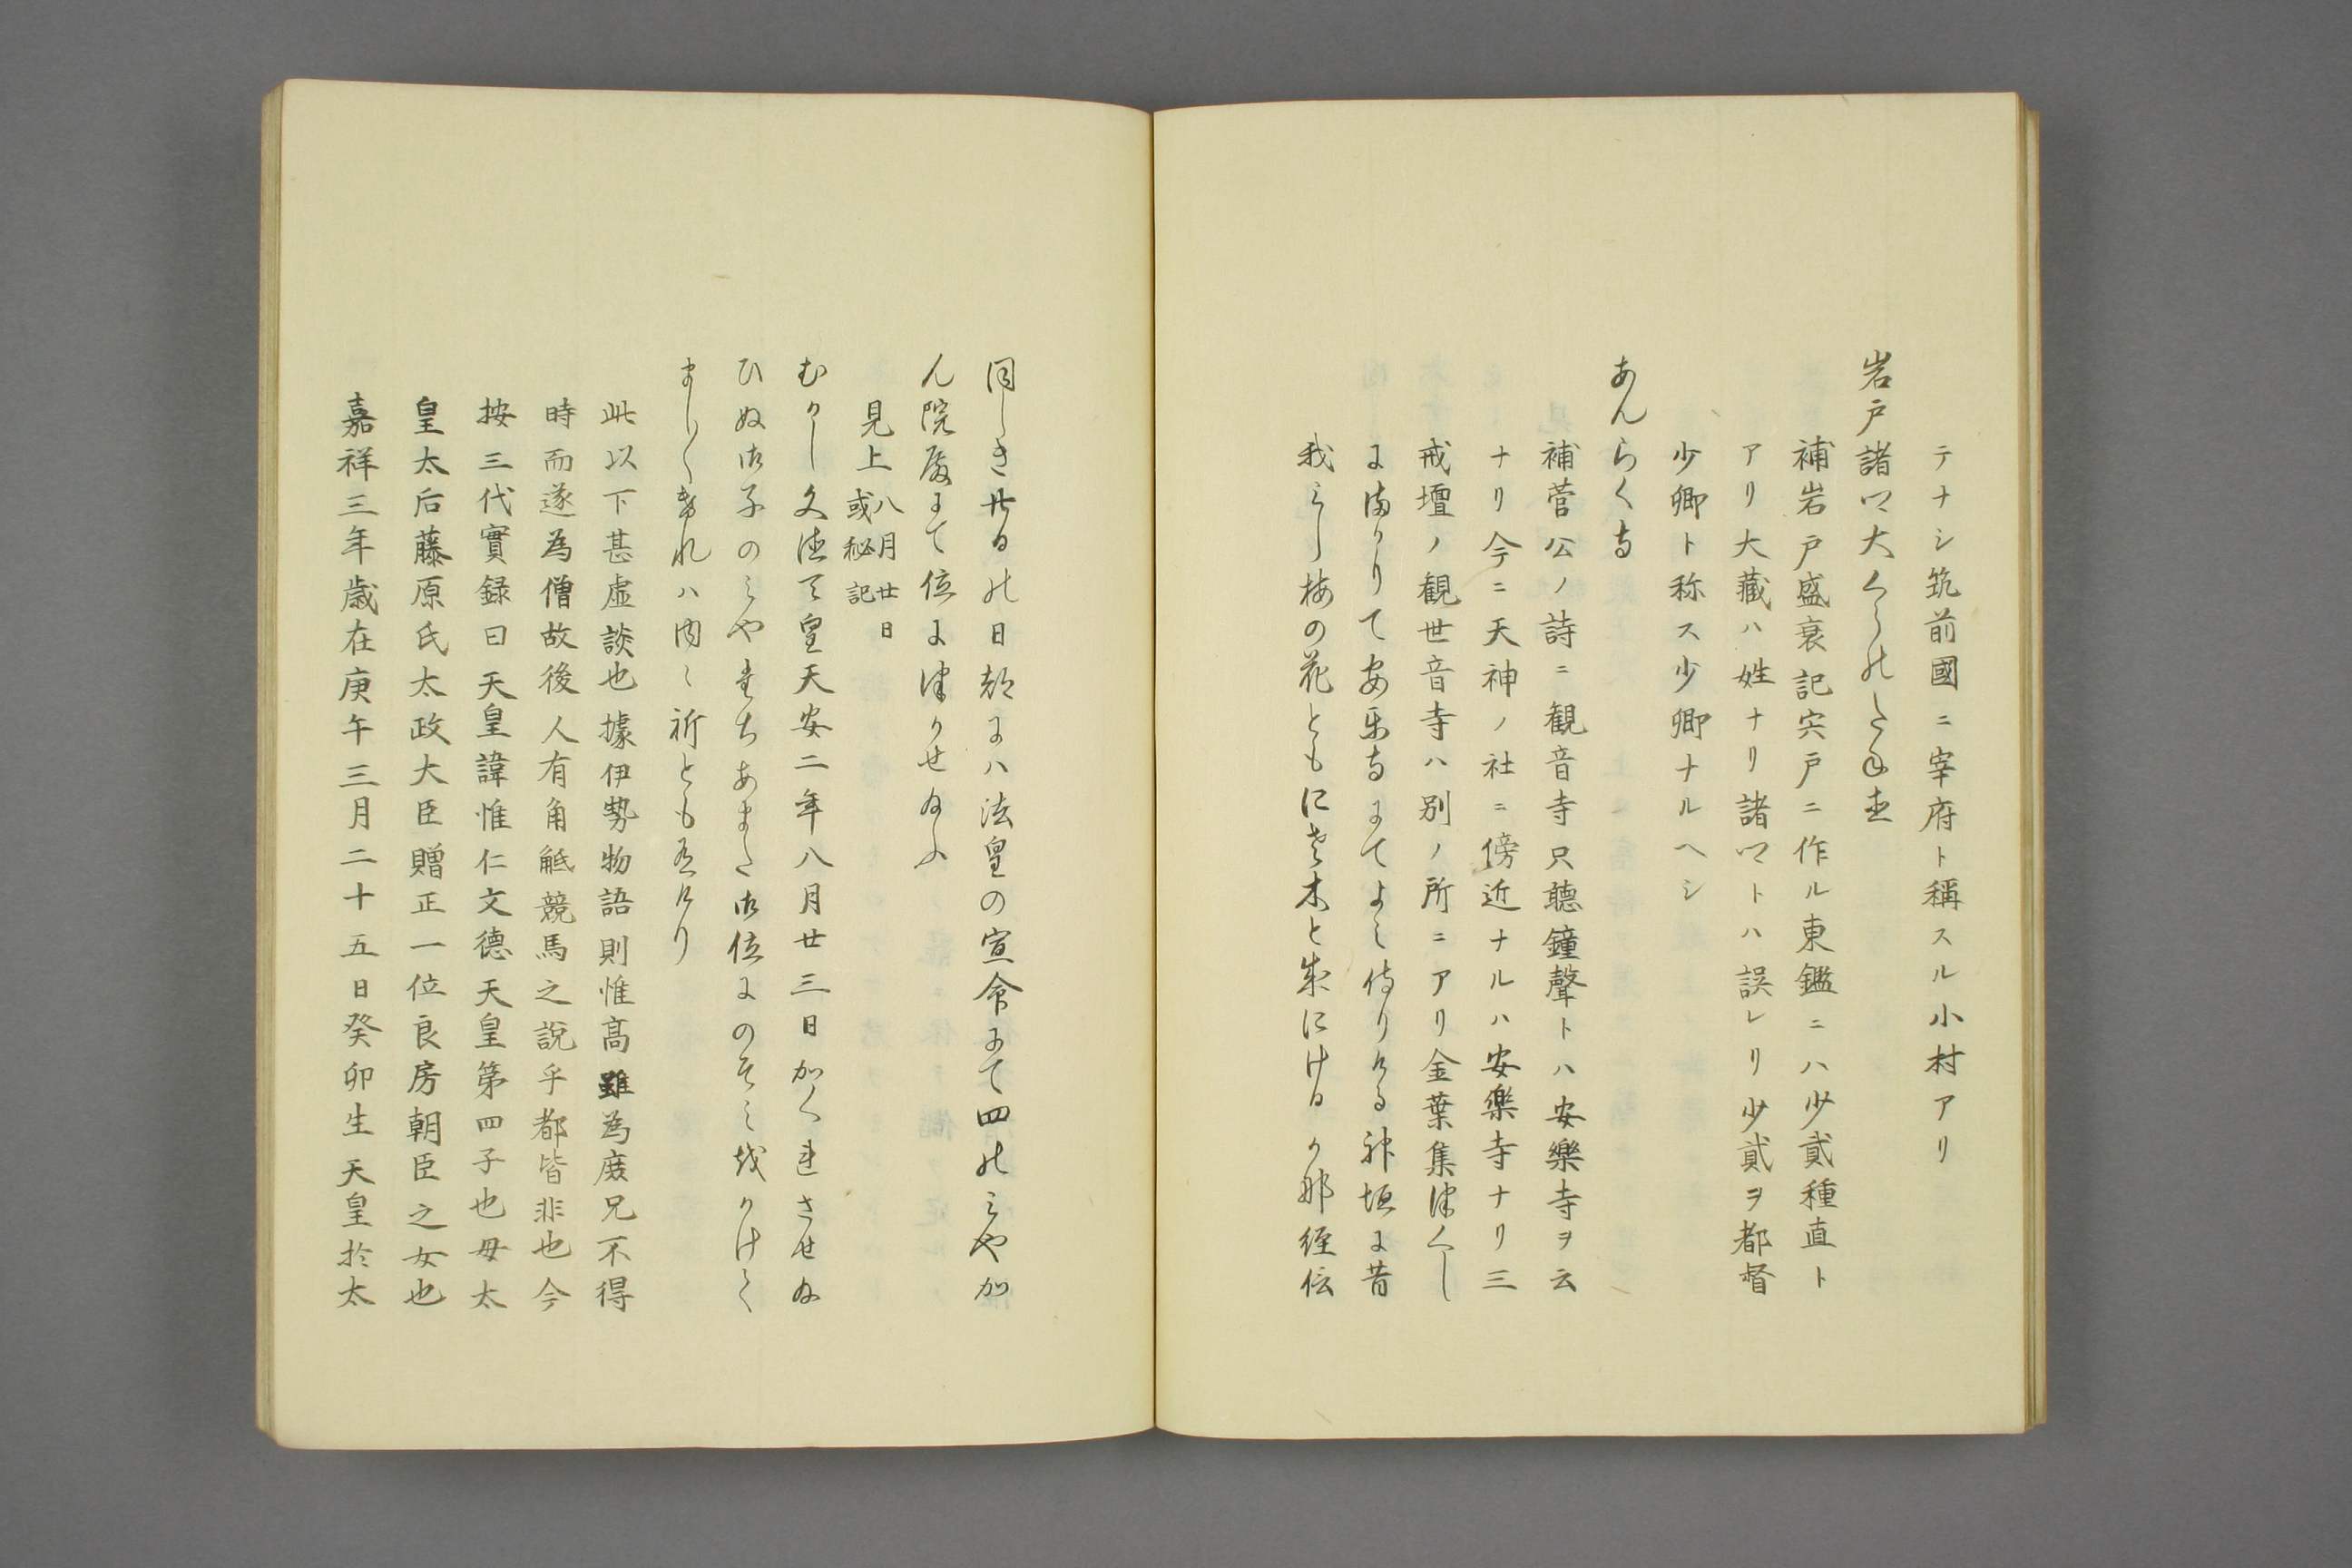 テナシ筑前國ニ宰府ト稱スル小村アリ
岩戸諸卿大くらのたね直
補岩戸盛衰記宍戸ニ作ル東鑑ニハ少貳種直ト
アリ大藏ハ姓ナリ諸卿トハ誤レリ少貳ヲ都督
少卿ト称ス少卿ナルヘシ
あんらく寺
補菅公ノ詩ニ観音寺只聴鐘聲トハ安樂寺ヲ云
ナリ今ニ天神ノ社ニ傍近ナルハ安樂寺ナリ三
戒壇ノ観世音寺ハ別ノ所ニアリ金葉集津くし
にまかりて安楽寺にてよみ侍りける神垣に昔
我みし梅の花ともに老木と成にけるか那経信
同しき廿日の日都にハ法皇の宣命にて四のみや加
ん院殿にて位に津かせ給ふ
見上八月廿日
或秘記
むかし文徳天皇天安二年八月廿三日加くれさせ給
ひぬ御子のみやたちあまた御位にのそみ越かけて
まし〱けれハ内々祈とも有けり
此以下甚虚談也據伊勢物語則惟高雖為庶兄不得
時而遂為僧故後人有角觝競馬之説乎都皆非也今
按三代實録曰天皇諱惟仁文徳天皇第四子也母太
皇太后藤原氏太政大臣贈正一位良房朝臣之女也
嘉祥三年歳在庚午三月二十五日癸卯生天皇於太